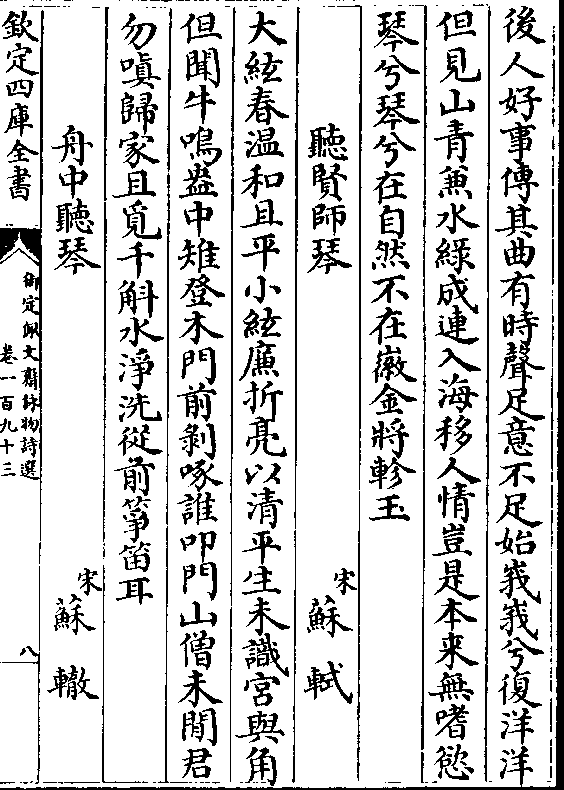 後人好事傳其曲有時聲足意不足始峩峩兮復洋洋
但見山青兼水綠成連入海移人情豈是本来無嗜慾
琴兮琴兮在自然不在徽金將軫玉
聽賢師琴 宋蘇軾
大絃春温和且平小絃廉折亮以清平生未識宮與角
但聞牛鳴盎中雉登木門前剝啄誰叩門山僧未閒君
勿嗔歸家且覓千斛水淨洗從前箏笛耳
舟中聽琴 宋蘇轍
欽定四庫全書
御定佩文齋詠物詩選
卷一百九十三
八